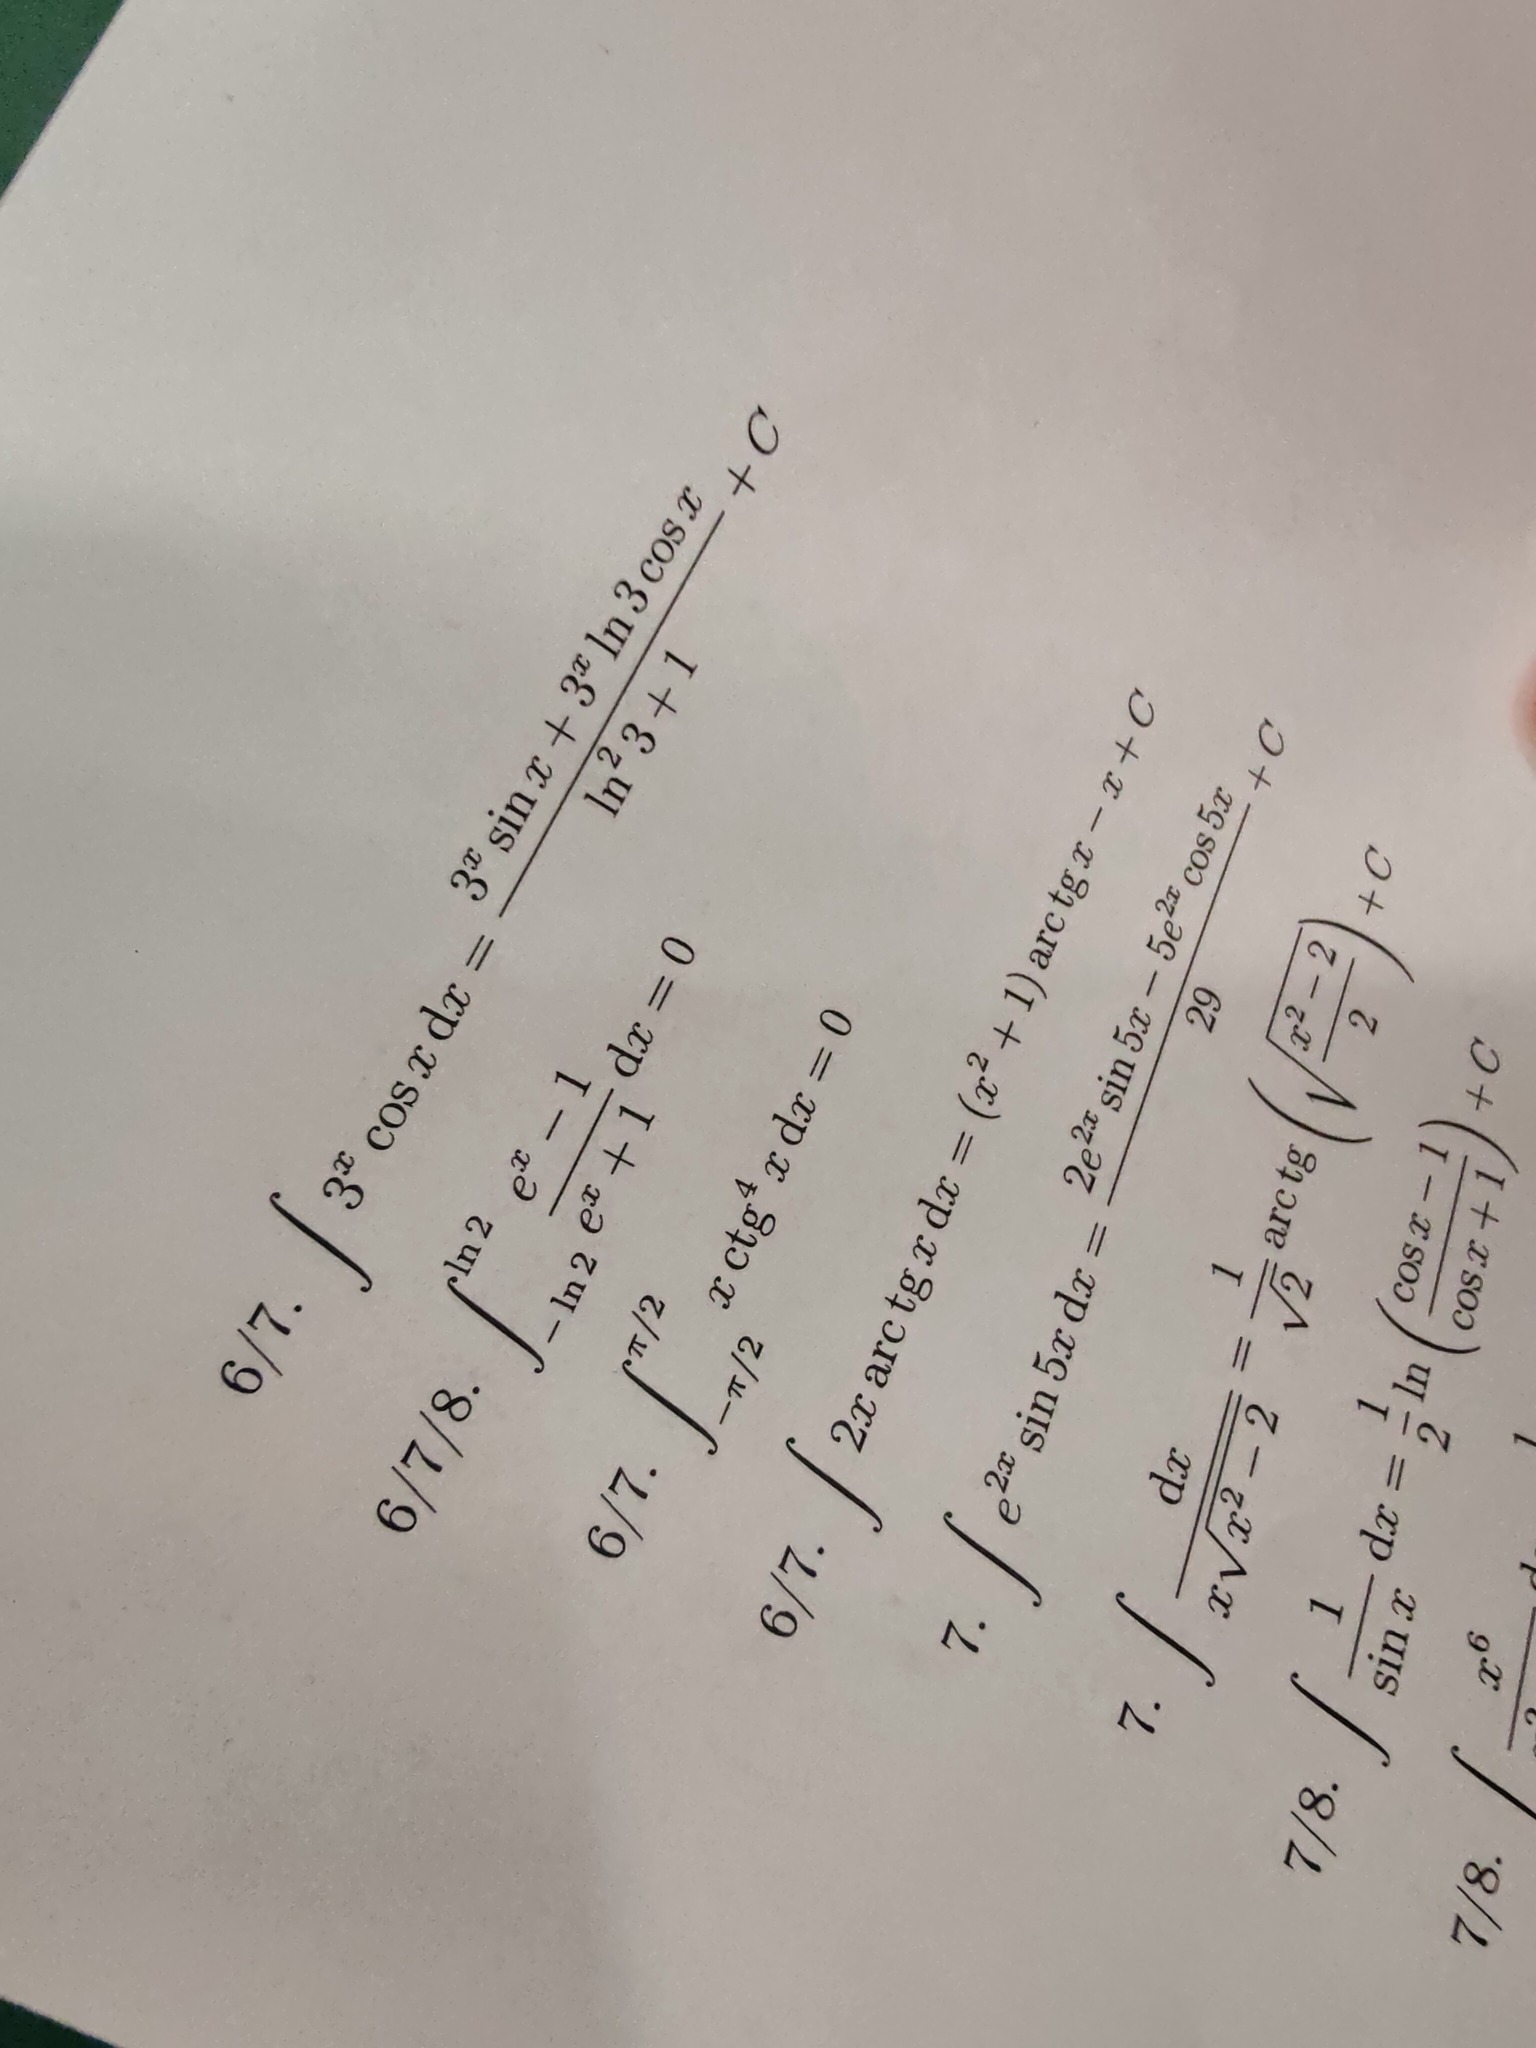 6/7. ∫ 3^x cos x dx = (3^x sin x + 3^x ln 3 cos x)/(ln^2 3 + 1) + C
6/7/8. ∫_{-ln 2}^{ln 2} (e^x − 1)/(e^x + 1) dx = 0
6/7. ∫_{-π/2}^{π/2} x ctg^4 x dx = 0
6/7. ∫ 2x arctg x dx = (x^2 + 1) arctg x − x + C
7. ∫ e^{2x} sin 5x dx = (2e^{2x} sin 5x − 5e^{2x} cos 5x)/29 + C
7. ∫ dx/(x√(x^2 − 2)) = 1/√2 arctg (√((x^2 − 2)/2)) + C
7/8. ∫ 1/(sin x) dx = 1/2 ln ((cos x − 1)/(cos x + 1)) + C
7/8. ∫ x^6